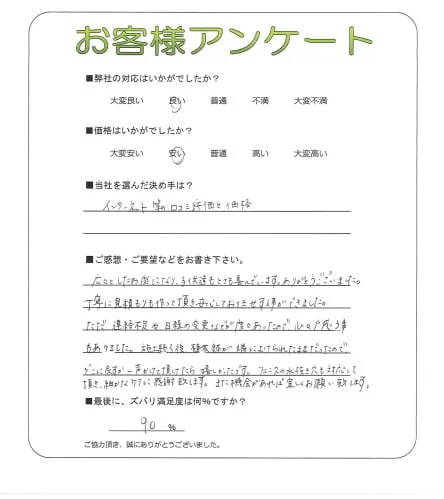 お客様アンケート
■弊社の対応はいかがでしたか？
大変良い 良い 普通 不満 大変不満
■価格はいかがでしたか？
大変安い 安い 普通 高い 大変高い
■当社を選んだ決め手は？
インターネット等の口コミ評価と価格
■ご感想・ご要望などをお書き下さい。
広々としたお庭になり、子供達もとても喜んでいます。ありがとうございました。
丁寧に見積もりも作って頂き安心してお任せする事ができました。
ただ、連絡不足や日程の変更などが度々あったので、心々
もありました。施工終了後、植木鉢が端によけられたままだったので、
どこに戻すか一声かけて頂けたら嬉しかったです。フェンスの水抜き穴も対応して
頂き、細かなケアに感謝致します。また機会があれば宜しくお願い致します。
■最後に、ズバリ満足度は何%ですか？
90 %
ご協力頂き、誠にありがとうございました。